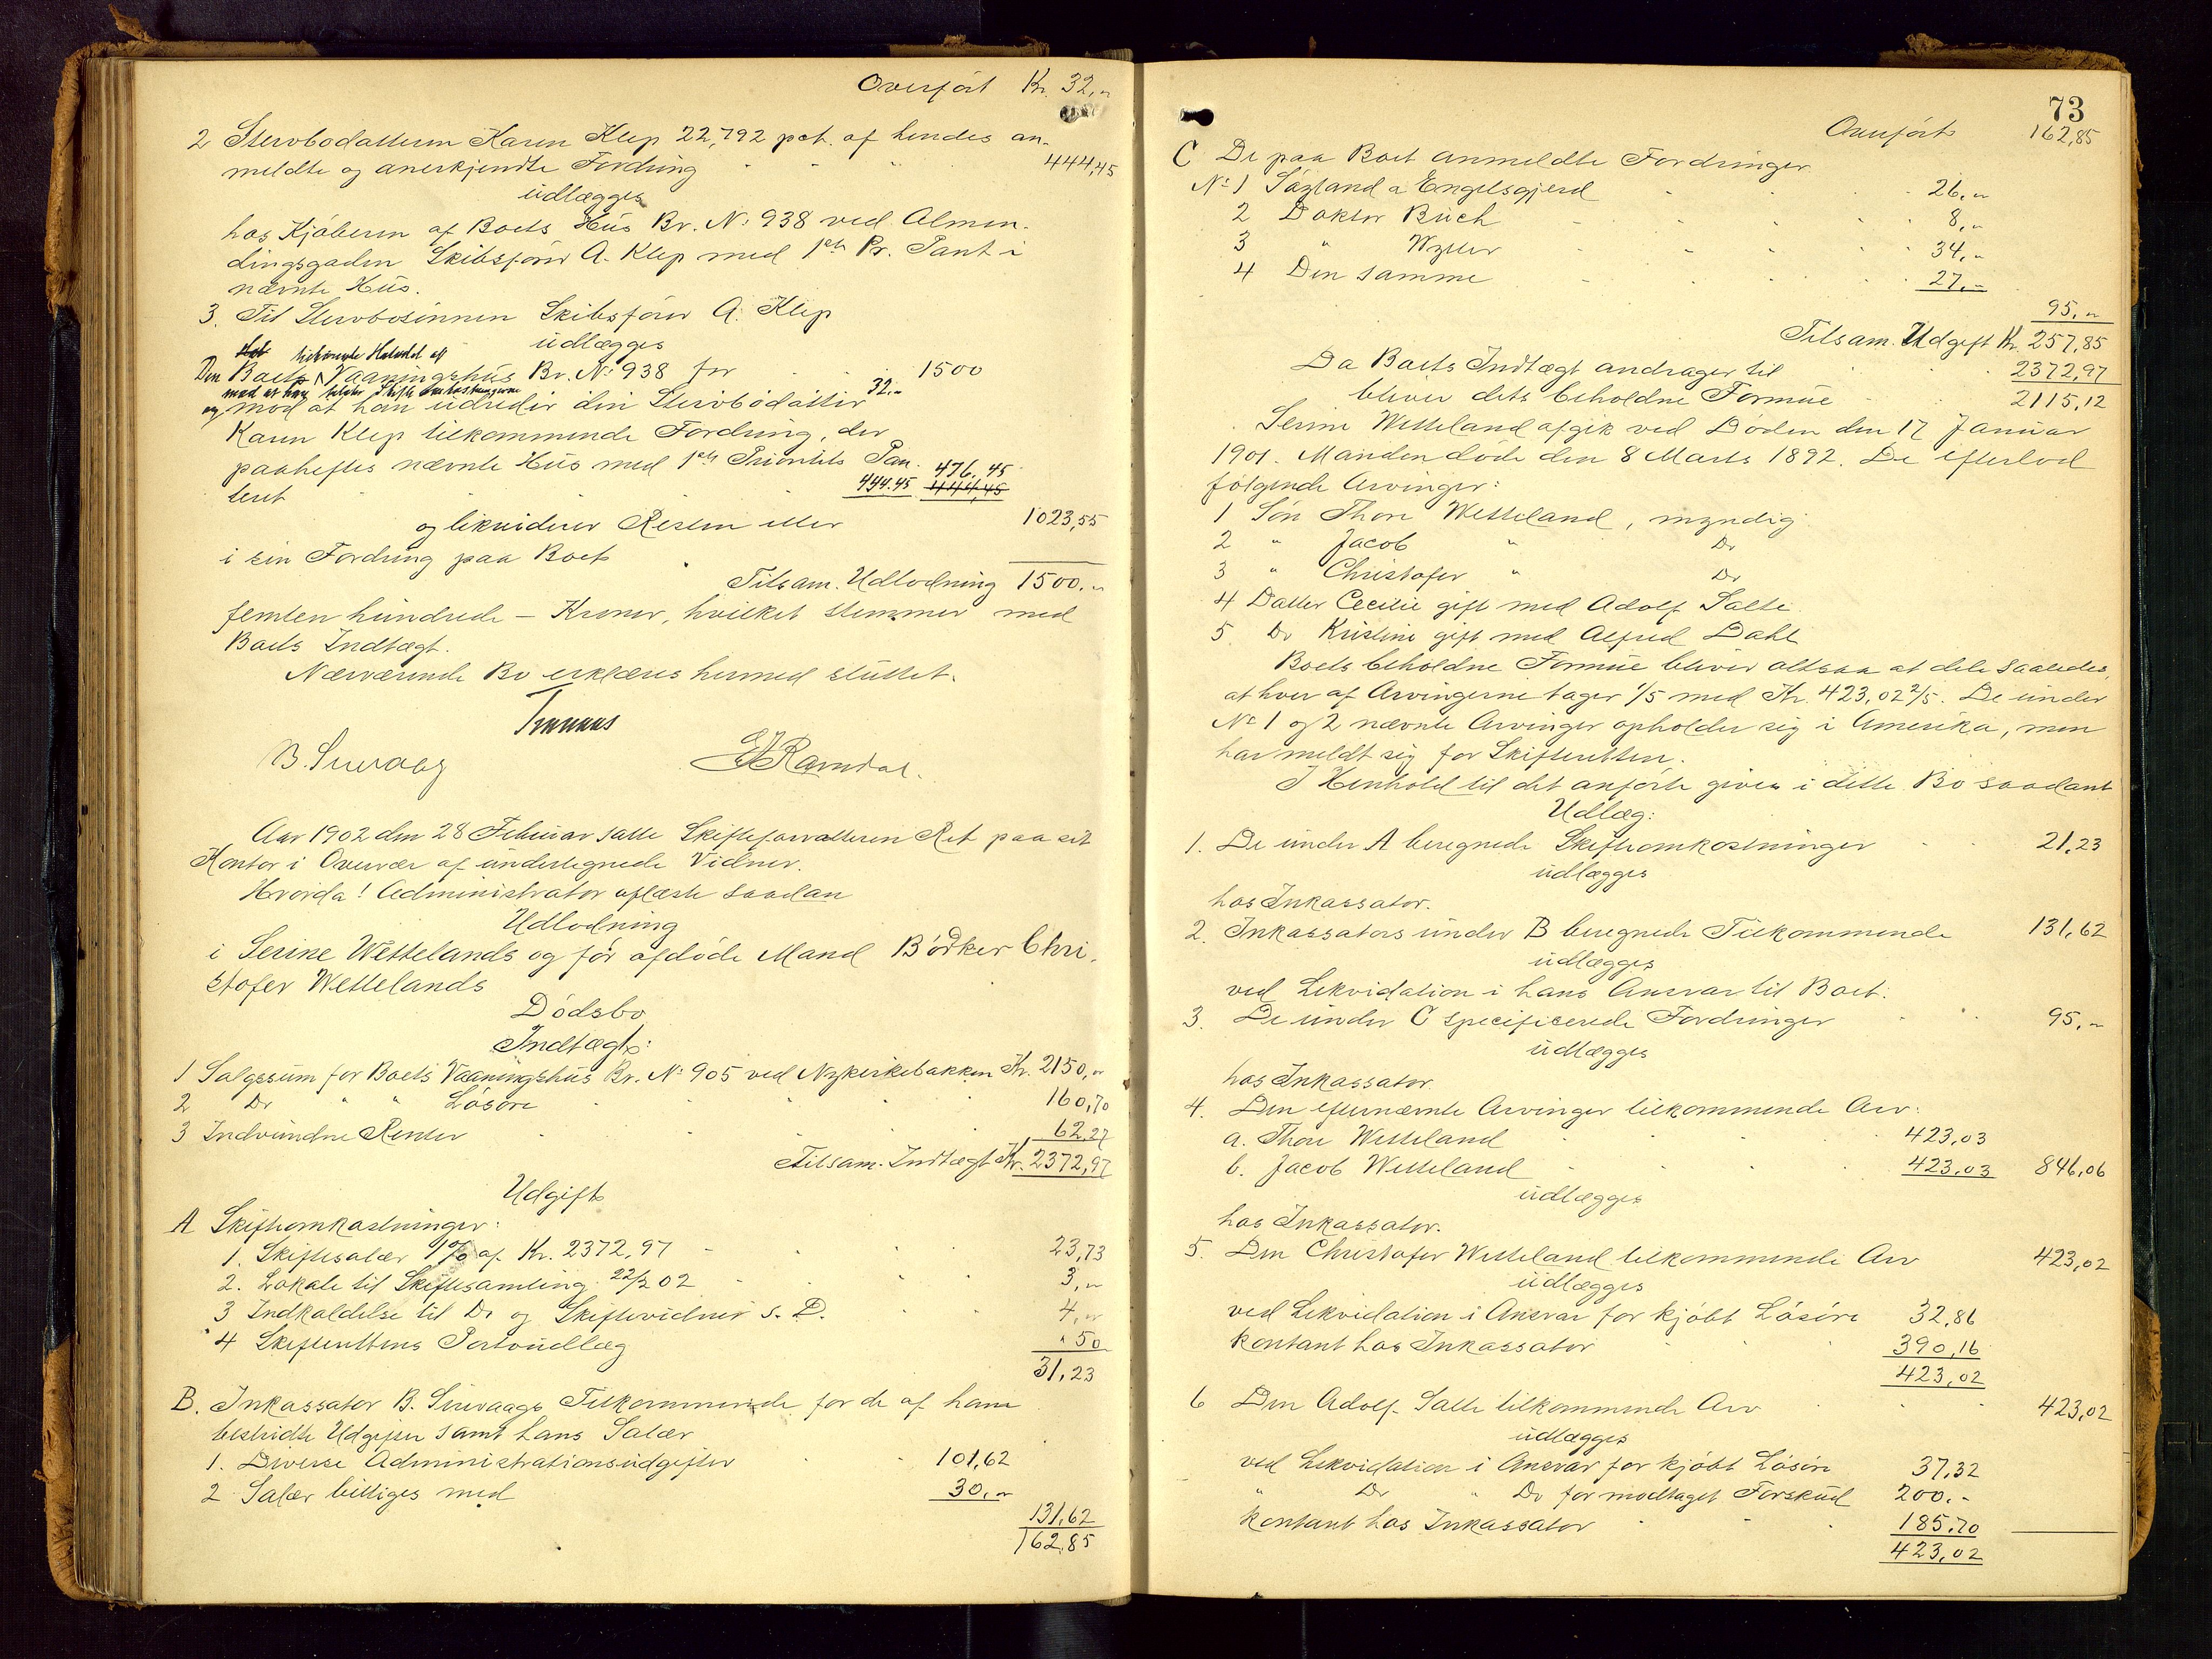 Overført Kr. 32,"
2 Stervbodatteren Karen Klep 22,792 pct. af hendes an-
meldte og anerkjendte Fordring " " 444,45
udlægges
hos Kjøberen af Boets Hus Br. No 938 ved Almen-
dingsgaden Skibsfører A. Klep med 1ste Pr. Pant i
nævnte Hus.
3. Til Stervbosønnen Skibsfører A. Klep
udlægges
tilkomende Halvdel af
Den Boets Vaaningshus Br. No 938 for 1500
med at han betaler Skifteomkostningerne 32.-
og mod at han udreder den Stervbodatter
Karen Klep tilkommende Fordring, der
paaheftes nævnte Hus med 1ste Prioritets Pan- 476,45
teret 444.45 444,45
og likviderer Resten eller 1023,55
i sin Fordring paa Boet
Tilsam. Udlodning 1500."
femten hundrede – Kroner, hvilket stemmer med
Boets Indtægt.
Nærværende Bo erklæres hermed sluttet.
B. Sirevaag
Aar 1902 den 28 Februar satte Skifteforvalteren Ret paa sit
Kontor i Overvær af undertegnede Vidner.
Hvorda! Administrator oplæste saadan
Udlodning
i Serine Wettelands og før afdøde Mand Bødker Chri-
stofer Wettelands
Dødsbo
Indtægt:
1 Salgssum for Boets Vaaningshus Br. No 905 ved Nykirkebakken Kr. 2150,"
2 Do " " Løsøre 160,70
3 Indvundne Renter 62,27
Tilsam. Indtægt Kr. 2372,97
Udgift
A Skifteomkostninger:
1. Skiftesalær 1% af Kr. 2372,97 23,73
2. Lokale til Skiftesamling 22/2 02 3,"
3 Indkaldelse til Do og Skiftevidner s. D. 4,"
4 Skifterettens Portoudlæg " 50
31,23
B. Inkassator B. Sirevaags Tilkommende for de af ham
bestridte Udgifter samt hans Salær
1. Diverse Administrationsudgifter 101,62
2 Salær billiges med 30,"
131,62
162,85
73
Overført 162,85
C De paa Boet anmeldte Fordringer
No 1 Søyland & Engelsgjerd 26,"
2 Doktor Buch 8,"
3 " Wyller 34,"
4 Den samme 27,"
95,"
Tilsam. Udgift Kr. 257,85
Da Boets Indtægt andrager til 2372,97
bliver dets beholdne Formue 2115,12
Serine Wetteland afgik ved Døden den 17 Januar
1901. Manden døde den 8 Marts 1892. De efterlod
følgende Arvinger:
1 Søn Thore Wetteland, myndig
2 " Jacob " Do
3 " Christofer " Do
4 Datter Cecilie gift med Adolf Salte
5 Do Kristine gift med Alfred Dahl
Boets beholdne Formue bliver altsaa at dele saaledes,
at hver af Arvingerne tager 1/5 med Kr. 423,02 2/5. De under
No 1 og 2 nævnte Arvinger opholder sig i Amerika, men
har meldt sig for Skifteretten.
I Henhold til det anførte gives i dette Bo saadant
Udlæg:
1. De under A beregnede Skifteomkostninger 21,23
udlægges
hos Inkassator.
2. Inkassators under B beregnede Tilkommende 131,62
udlægges
ved Likvidation i hans Ansvar til Boet.
3. De under C specificerede Fordringer 95,"
udlægges
hos Inkassator.
4. Den efternævnte Arvinger tilkommende Arv:
a. Thore Wetteland 423,03
b. Jacob Wetteland 423,03 846,06
udlægges
hos Inkassator.
5. Den Christofer Wetteland tilkommende Arv 423,02
udlægges
ved Likvidation i Ansvar for kjøbt Løsøre 32,86
kontant hos Inkassator 390,16
423,02
6 Den Adolf Salte tilkommende Arv 423,02
udlægges
ved Likvidation i Ansvar for kjøbt Løsøre 37,32
" Do " Do for modtaget Forskud 200.-
kontant hos Inkassator 185,70
423,02